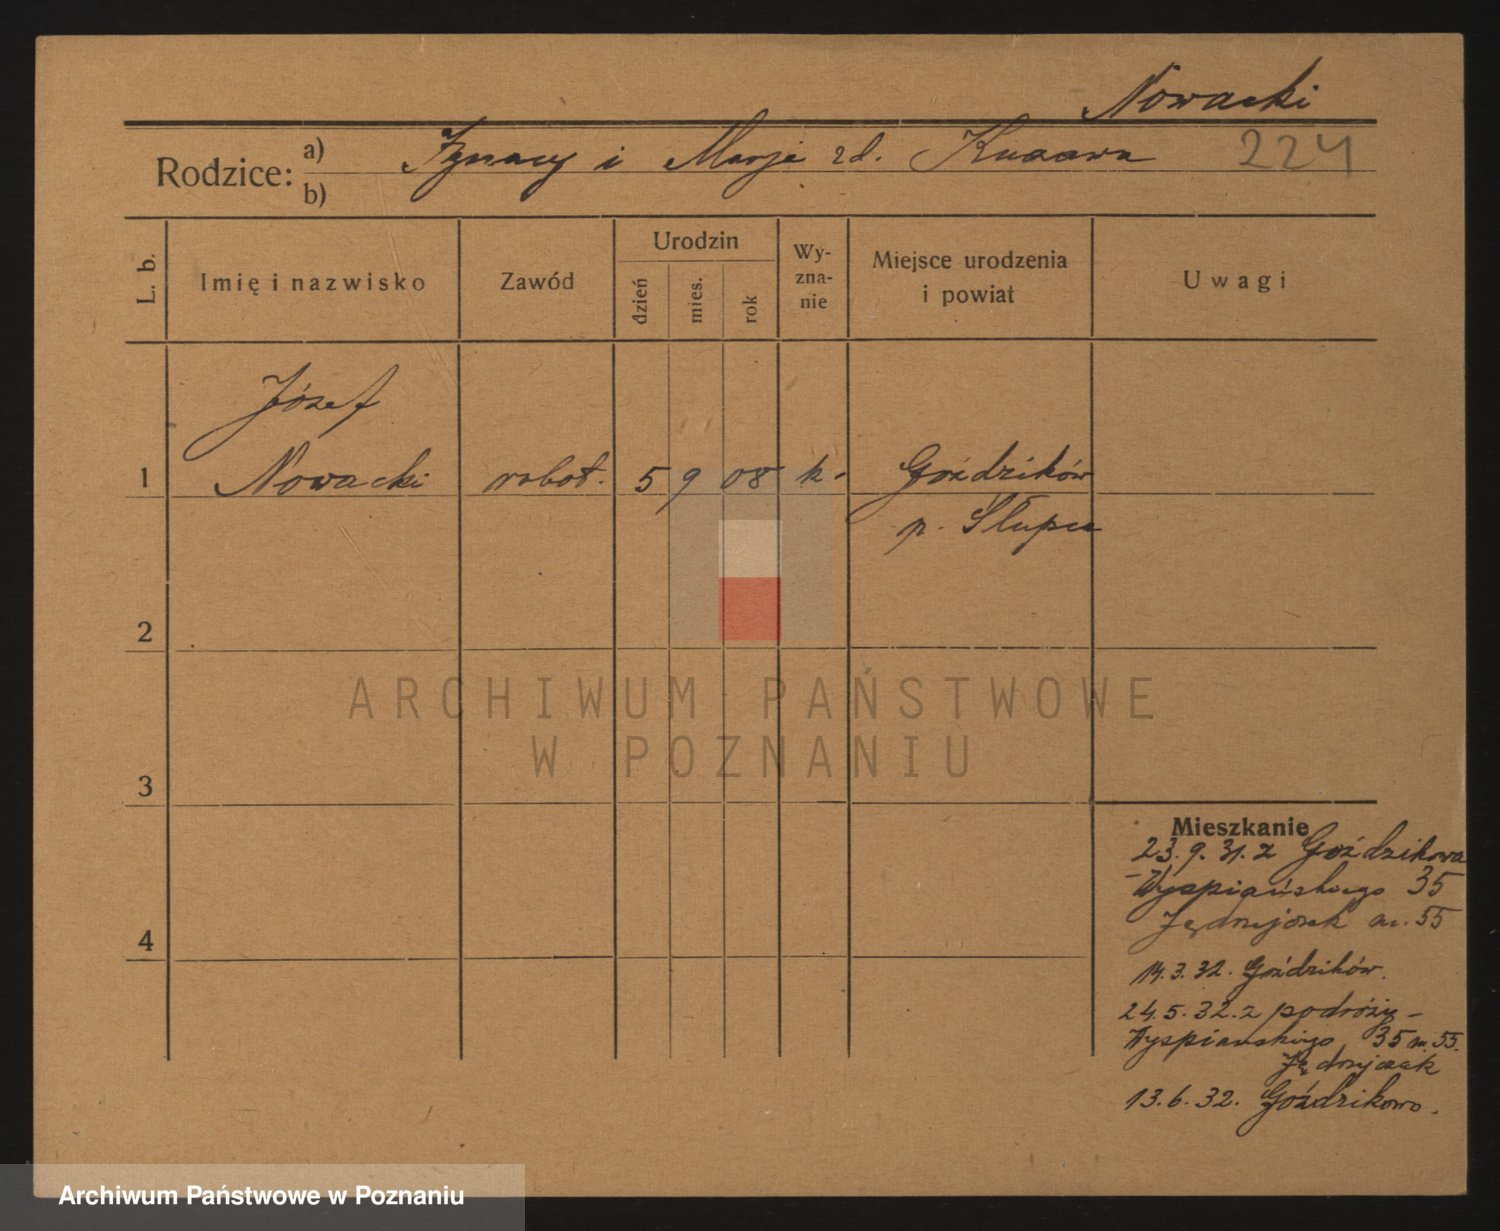 Nowacki
Rodzice: a) Ignacy i Marja zd.
224
b)
L. b.
Imię i nazwisko
Zawód
Urodzin
dzień
mies.
rok
Wy-
zna-
nie
Miejsce urodzenia
i powiat
Uwagi
Józef
1 Nowacki robot. 5 9 08 k. Goździków
p. Słupca
2
3
4
ARCHIWUM PAŃSTWOWE
W POZNANIU
Mieszkanie
23.9.31. z Goździkowa
- Wyspiańskiego 35
Jędrzejczak m. 55
14.3.32. Goździków.
24.5.32. z podróży -
Wyspianskiego 35 m. 55.
Jędrzejczak
13.6.32. Goździkowo.
Archiwum Państwowe w Poznaniu